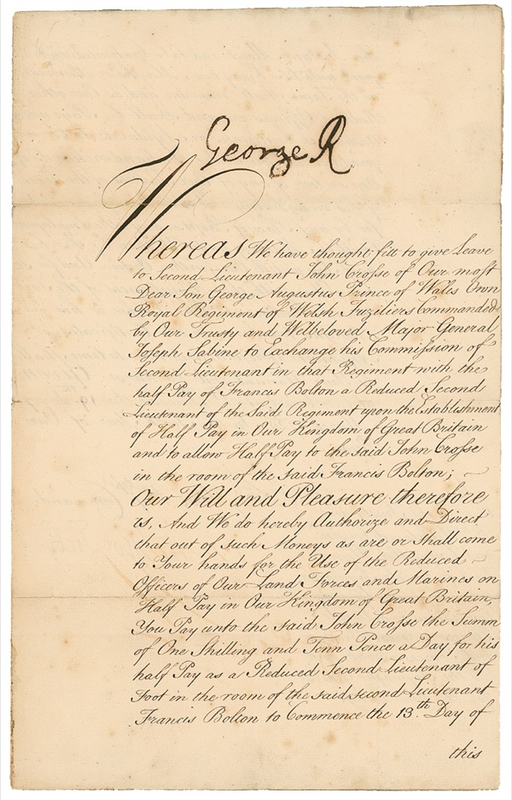 George R
Whereas We have thought fitt to give Leave
to Second Lieutenant John Crosse of Our most
Dear Son George Augustus Prince of Wales Own
Royal Regiment of Welsh Fuziliers Commanded
by Our Trusty and Welbeloved Major General
Joseph Sabine to Exchange his Commission of
Second Lieutenant in that Regiment with the
half Pay of Francis Bolton a Reduced Second
Lieutenant of the Said Regiment upon the Establishment
of Half Pay in Our Kingdom of Great Britain
and to allow Half Pay to the said John Crosse
in the room of the said Francis Bolton;
Our Will and Pleasure therefore
is, And We do hereby Authorize and Direct
that out of such Moneys as are or shall come
to Your hands for the Use of the Reduced
Officers of Our Land Forces and Marines on
Half Pay in Our Kingdom of Great Britain,
You Pay unto the said John Crosse the Summ
of One Shilling and Tenn Pence a Day for his
half Pay as a Reduced Second Lieutenant of
Foot in the room of the said second Lieutenant
Francis Bolton to Commence the 13th. Day of
this